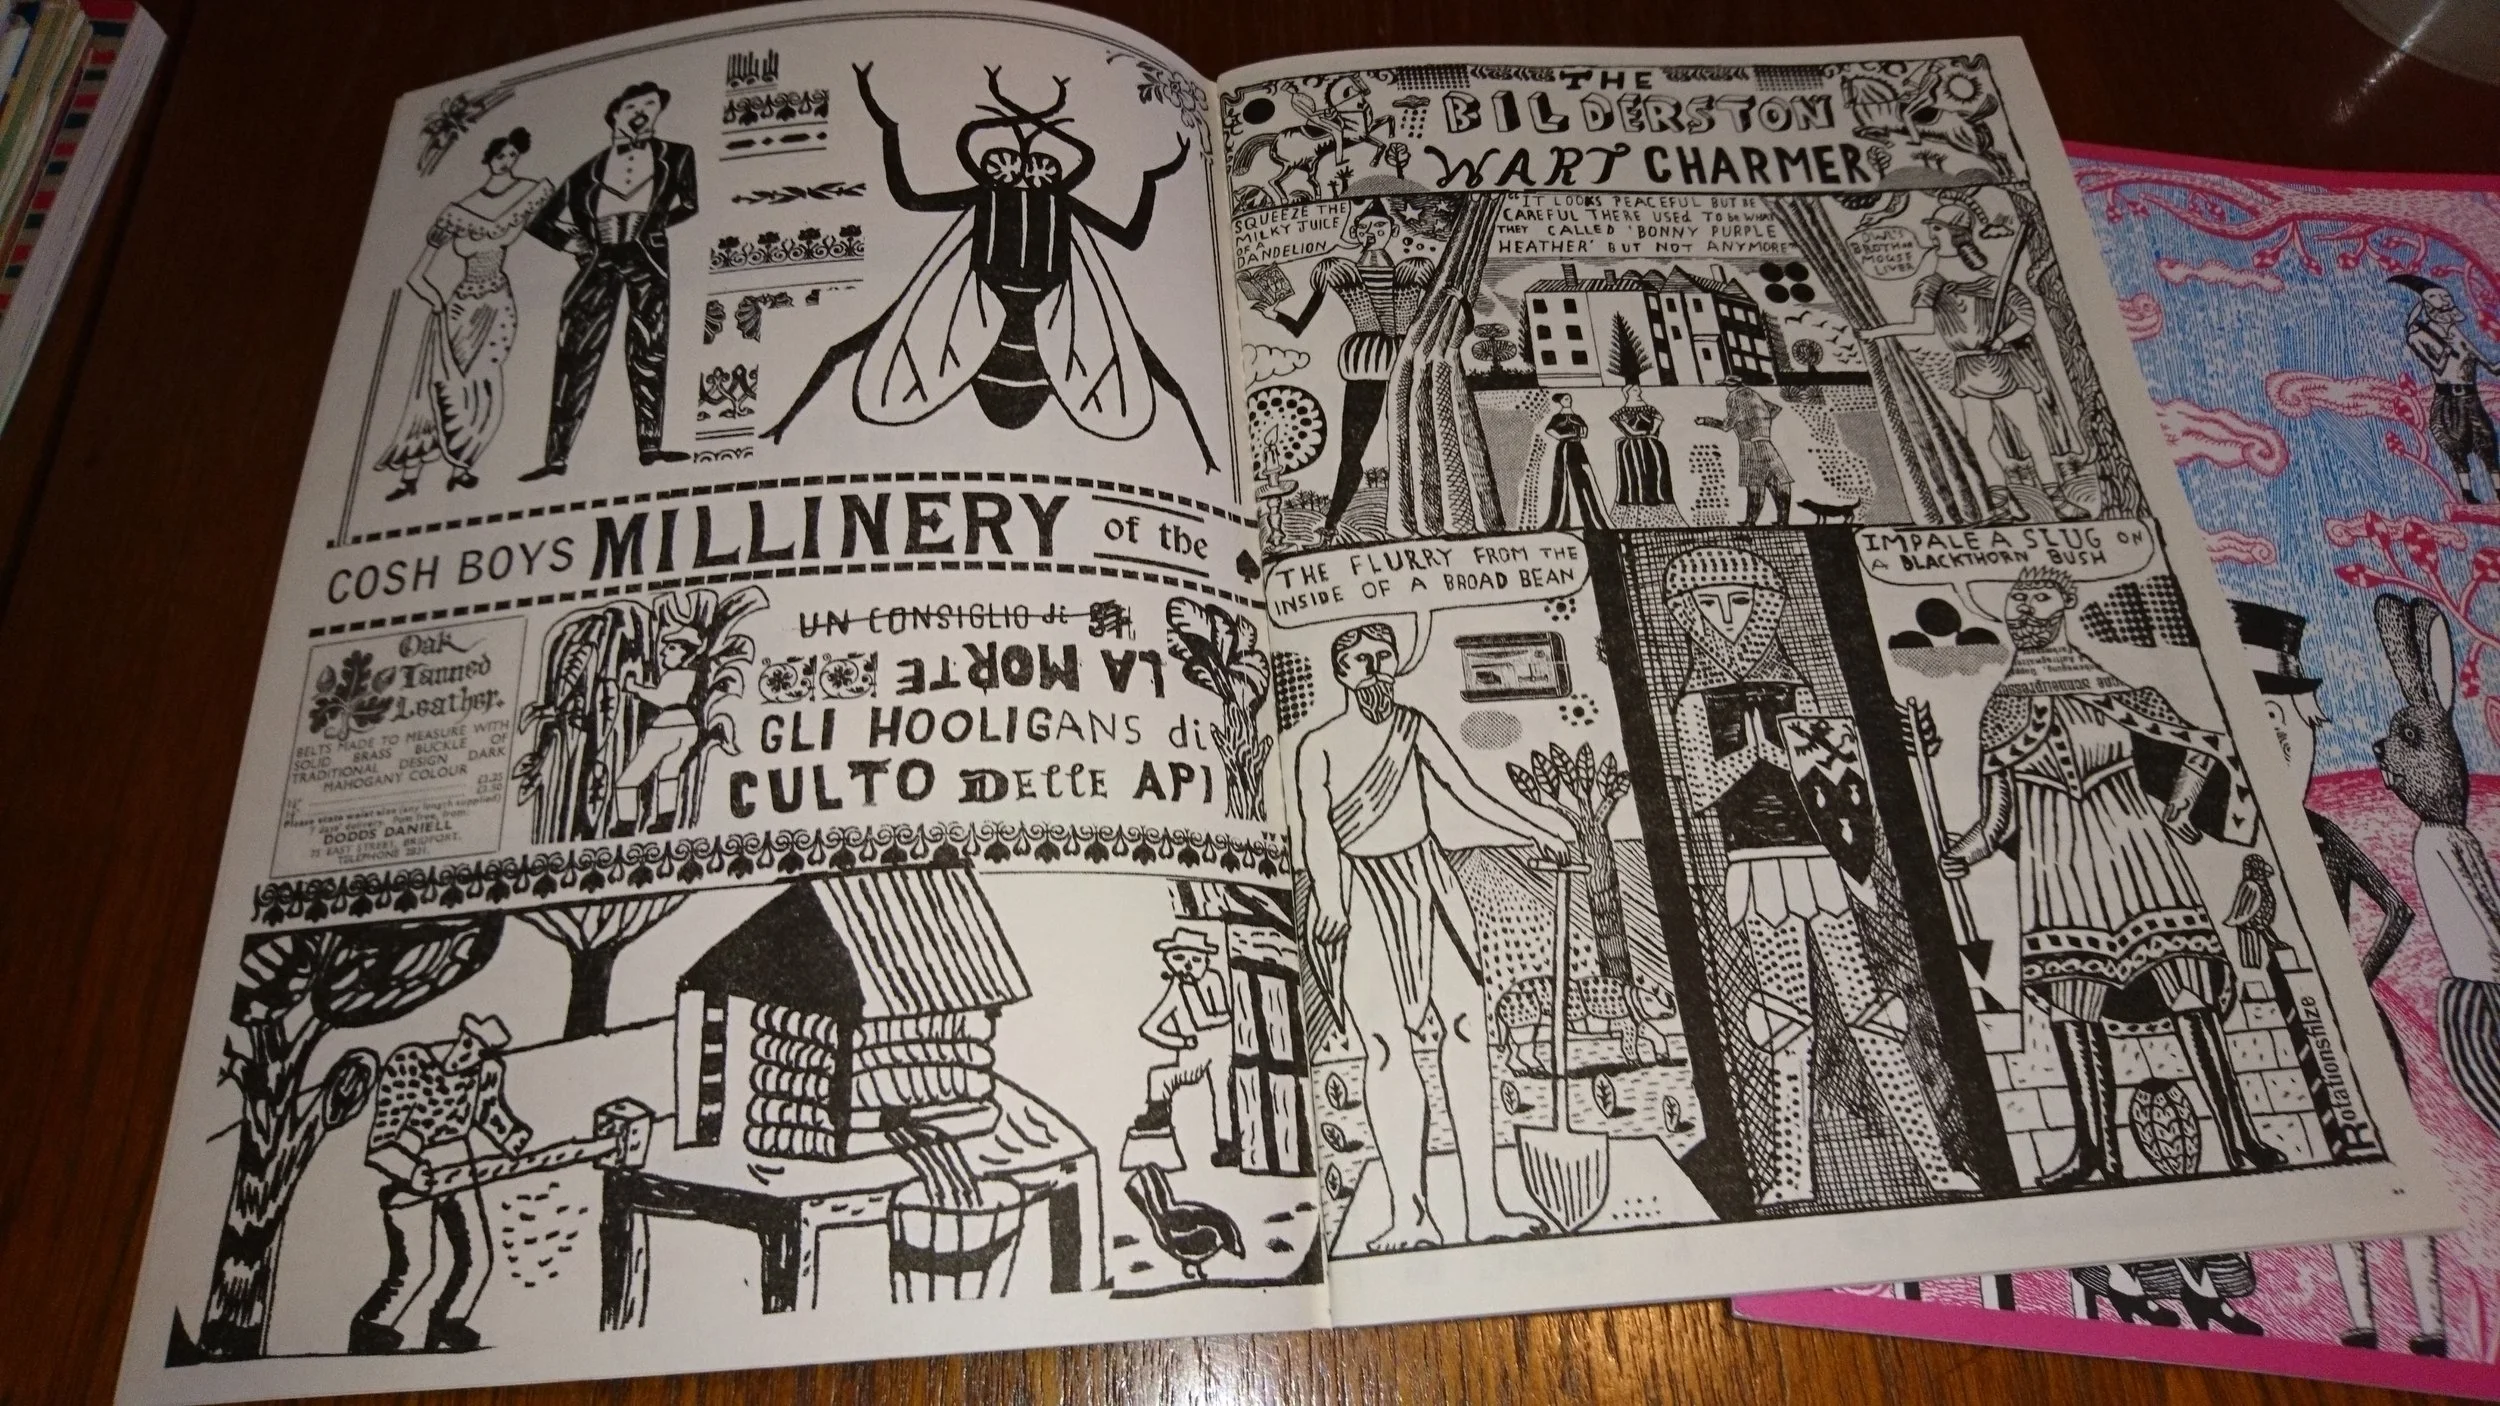 COSH BOYS MILLINERY of the
Oak
Tanned
Leather.
BELTS MADE TO MEASURE WITH
SOLID BRASS BUCKLE OF
TRADITIONAL DESIGN DARK
MAHOGANY COLOUR
£3.25
£3.50
Please state waist size (any length supplied)
DODDS DANIELL
EAST STREET, BRIDPORT,
TELEPHONE
UN CONSIGLIO di
LA MORTE
GLI HOOLIGANS di
CULTO DELLE API
THE
BILDERSTON
WART CHARMER
SQUEEZE THE
MILKY JUICE
OF A
DANDELION
"IT LOOKS PEACEFUL BUT BE
CAREFUL THERE USED TO BE WHAT
THEY CALLED 'BONNY PURPLE
HEATHER' BUT NOT ANYMORE"
BROTH OR
MOUSE
LIVER
THE FLURRY FROM THE
INSIDE OF A BROAD BEAN
IMPALE A SLUG ON
A BLACKTHORN BUSH